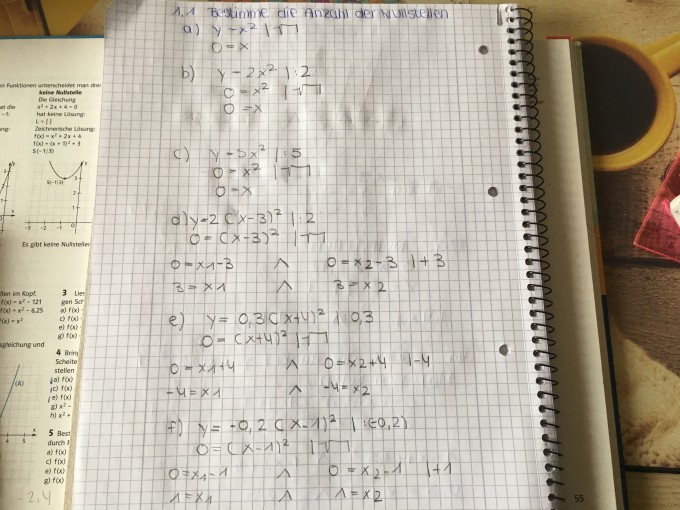 1,1 Bestimme die Anzahl der Nullstellen
a) y = x² |√
0 = x
b) y = 2x² |:2
0 = x² |√
0 = x
c) y = 5x² |:5
0 = x² |√
0 = x
d) y = 2 (x-3)² |:2
0 = (x-3)² |√
0 = x1-3 ∧ 0 = x2-3 |+3
3 = x1 ∧ 3 = x2
e) y = 0,3 (x+4)² |:0,3
0 = (x+4)² |√
0 = x1+4 ∧ 0 = x2+4 |-4
-4 = x1 ∧ -4 = x2
f) y = -0,2 (x-1)² |:(-0,2)
0 = (x-1)² |√
0 = x1-1 ∧ 0 = x2-1 |+1
1 = x1 ∧ 1 = x2
en Funktionen unterscheidet man drei
keine Nullstelle
Die Gleichung
x² + 2x + 4 = 0
hat keine Lösung:
L = { }
Zeichnerische Lösung:
f(x) = x² + 2x + 4
f(x) = (x + 1)² + 3
S(-1/3)
S(-1/3)
3
2
1
-3 -2 -1 0
Es gibt keine Nullstellen
llen im Kopf.
f(x) = x² - 121
f(x) = x² - 6,25
(x) = x²
sgleichung und
(A)
4 5 x
3 Lies
gen Sch
a) f(x)
c) f(x)
e) f(x)
g) f(x)
4 Brin
Scheite
stellen
a) f(x)
c) f(x)
e) f(x)
g) x²
h) x²
5 Best
durch
a) f(x)
c) f(x)
e) f(x)
g) f(x)
-2,4
55